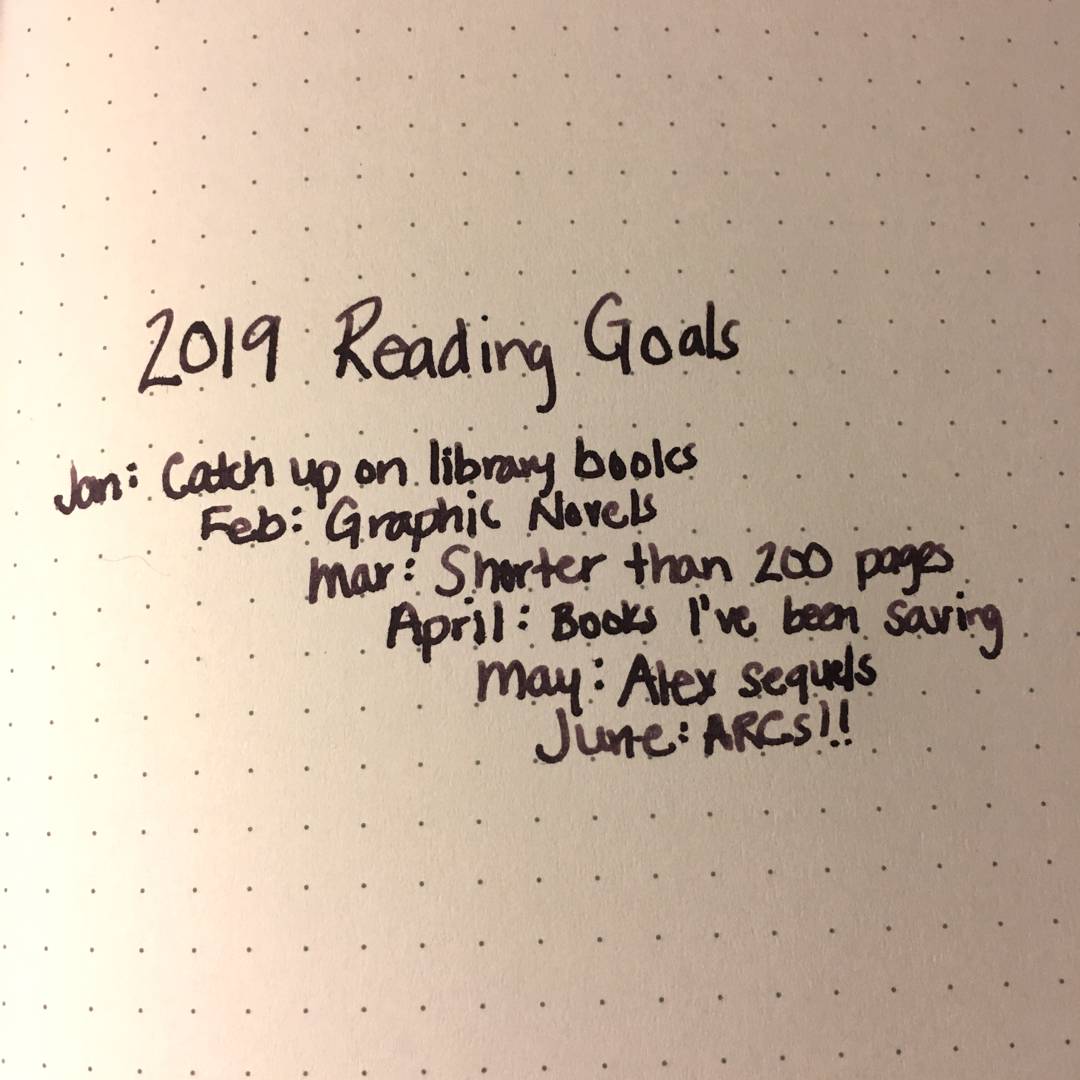 2019 Reading Goals
Jan: Catch up on library books
Feb: Graphic Novels
Mar: Shorter than 200 pages
April: Books I've been saving
May: Alex sequels
June: ARCs!!